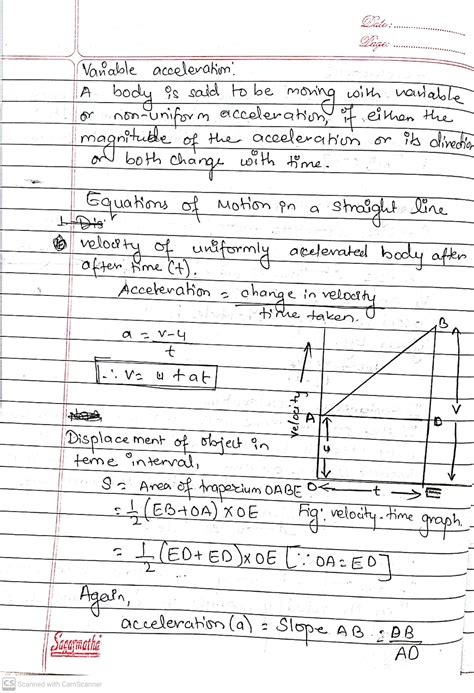 Date: ..............
Page: ..............
Variable acceleration:
A body is said to be moving with variable
or non-uniform acceleration, if either the
magnitude of the acceleration or its direction
or both change with time.
Equations of Motion in a straight line
1. Dis
velocity of uniformly accelerated body after
after time (t).
Acceleration = change in velocity
time taken.
a = v-u
t
∴ v = u + at
B
velocity
A
u
v
D
Displacement of object in
teme interval,
S = Area of trapezium OABE
O
t
E
= 1/2 (EB+OA) x OE
Fig: velocity-time graph.
= 1/2 (ED+ED) x OE [∵ OA = ED]
Again,
acceleration (a) = Slope AB = DB
AD
Sagarmatha
CS Scanned with CamScanner